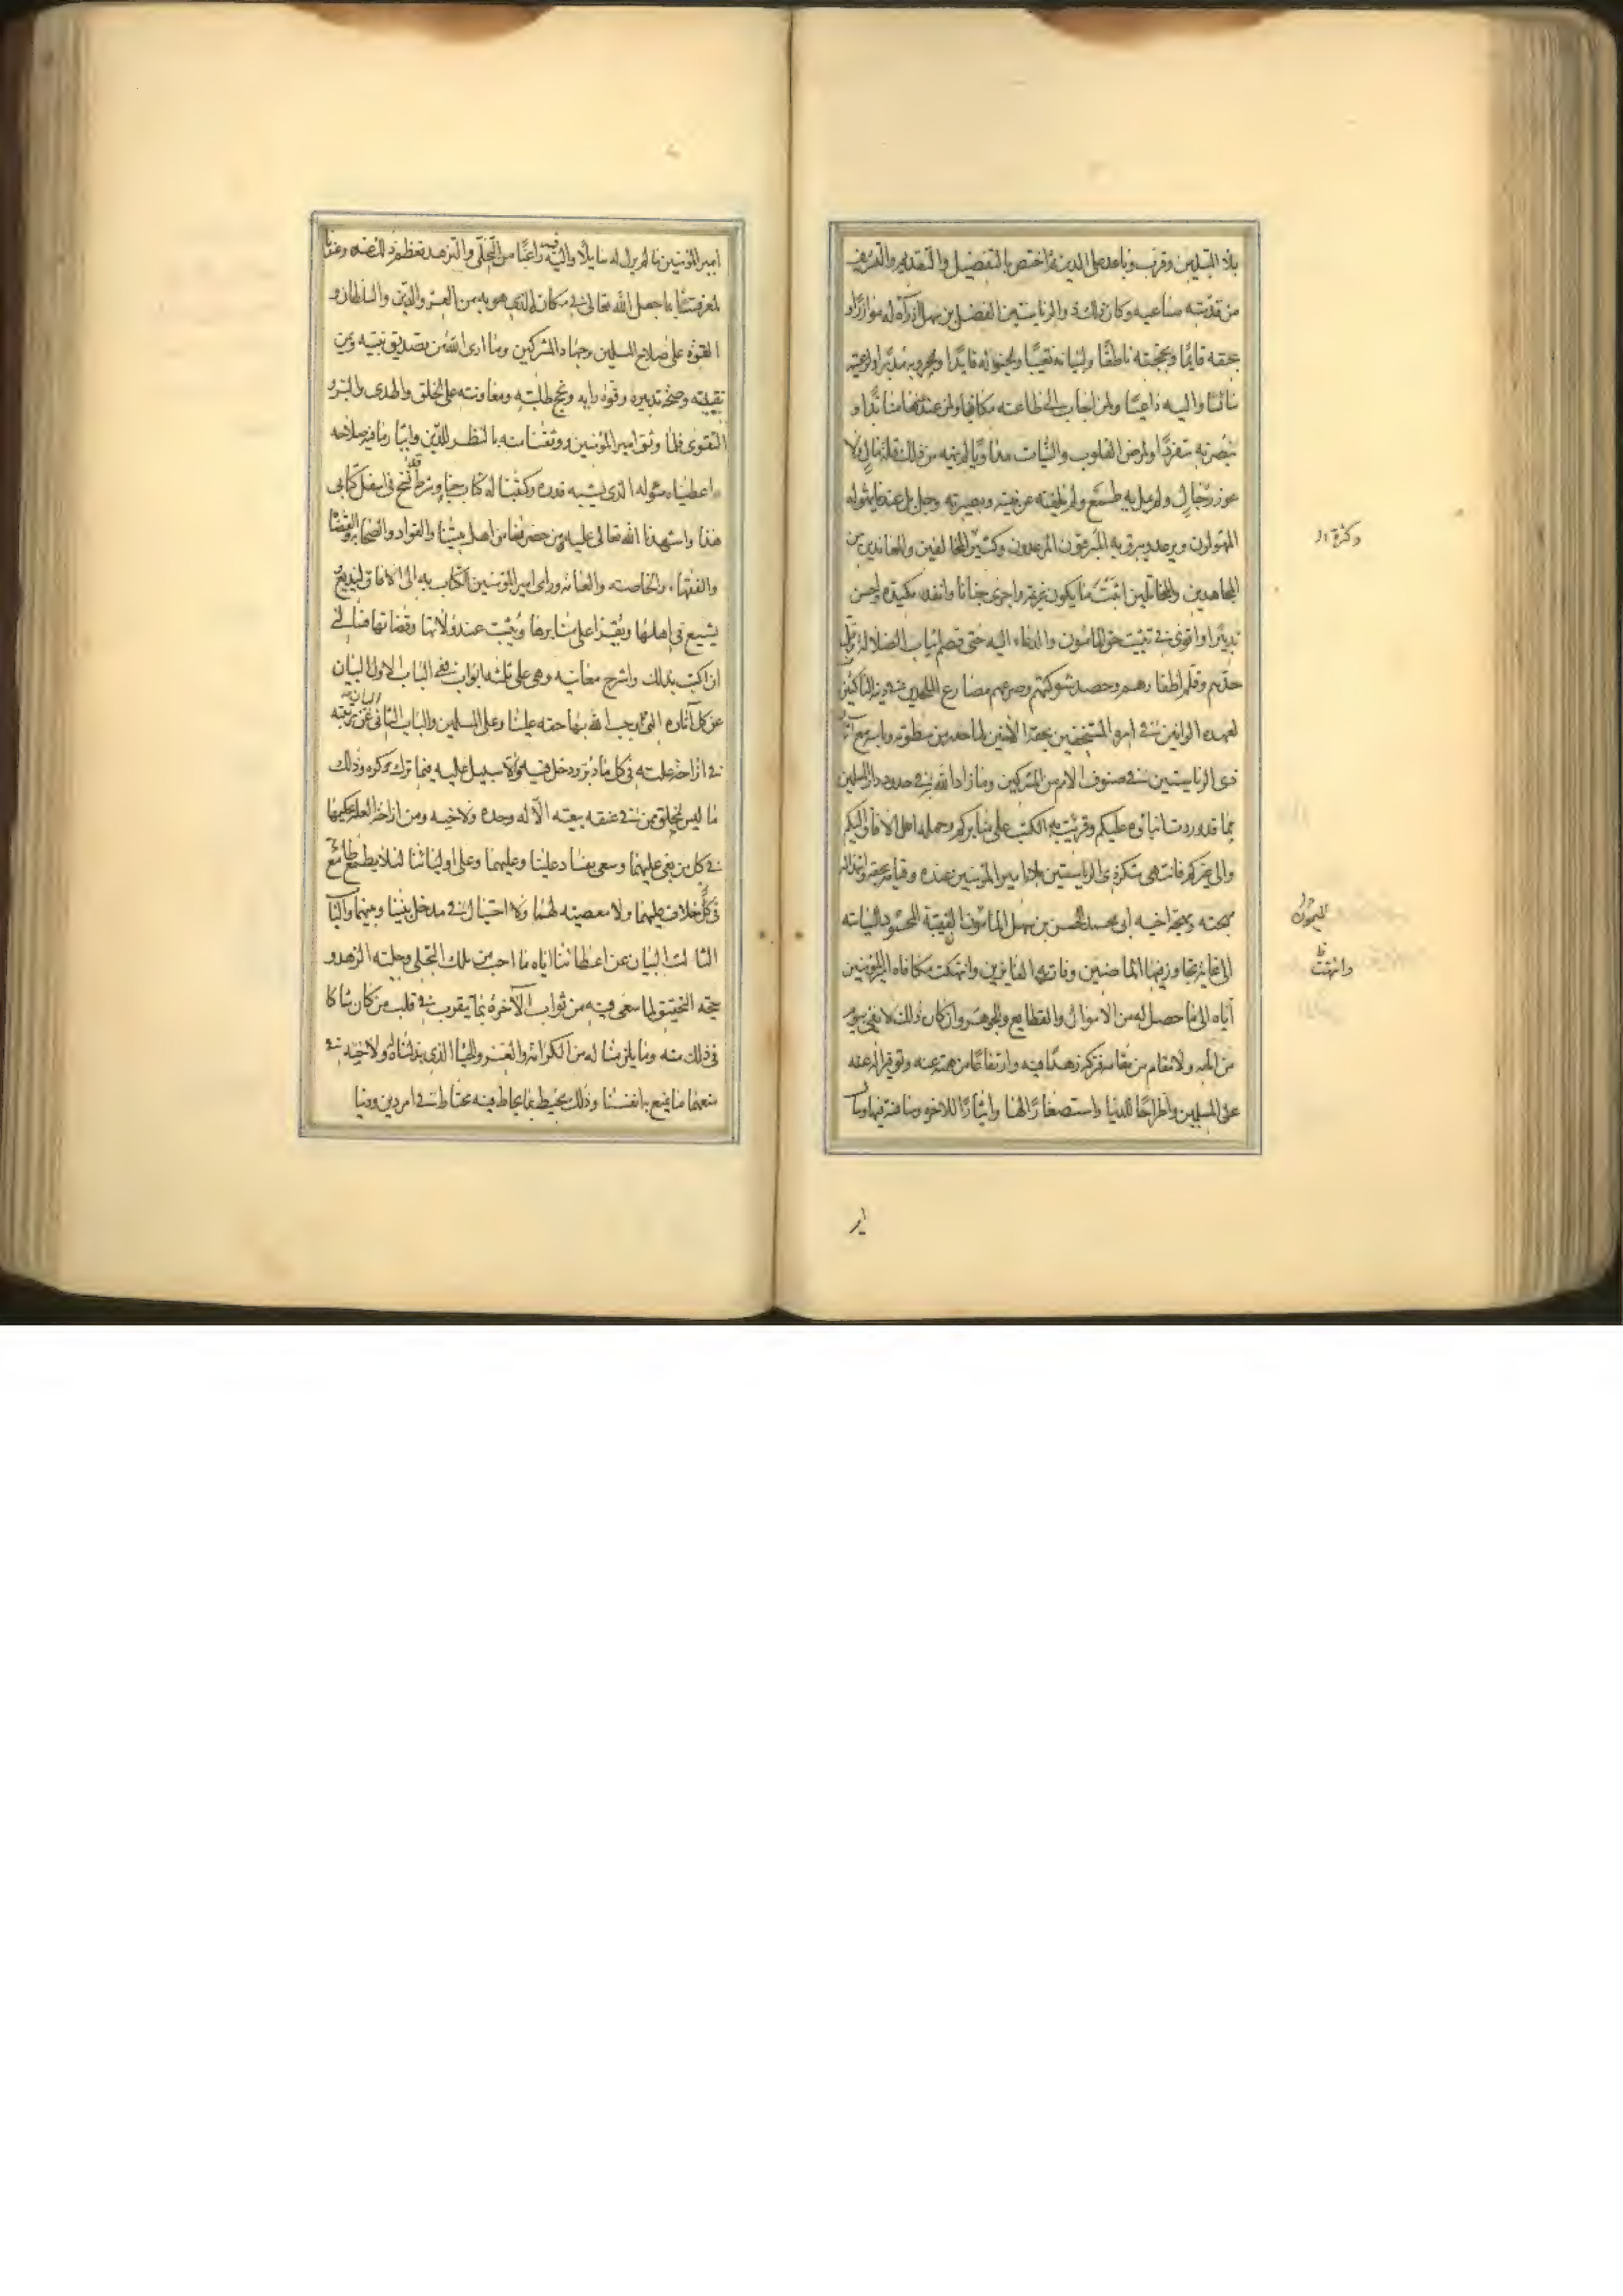 بلاد المسلمين وقرب وباعد على الدين فاختص بالتفضيل والتقديم والتشريف
من قدمته مساعيه وكان ذلك ذو الرياستين الفضل بن سهل اذ رآه له موازرا و
بحقه قايما وبحجته ناطقا ولنقبائه نقيبا ولخيوله قايدا ولحروبه مدبرا ولرعيته
سائسا واليه داعيا ولمن اجاب الى طاعته مكافيا ولمن عند عنها منابذا و
بنصرته متفردا ولمرض القلوب والنيات مداويا لم ينهه من ذلك قلة مال ولا
عوز رجال ولم يمل به طمع ولم يلفته عن نيته وبصيرته وجل بل عند ما يهوله
المهولون ويرعد ويبرق به المبرقون المرعدون وكثير المخالفين والمعاندين من
وكثرة
المجاهدين والمخاتلين اثبت ما يكون عزيمة واجرى جنانا وانفذ مكيدة واحسن
تدبيرا واقوى فى تثبيت حق المامون والدعاء اليه حتى قصم انياب الضلالة وفل
حدهم وقلم اظفارهم وحصد شوكتهم وصرعهم مصارع الملحدين فى دينه الناكثين
لعهده الوانين فى امره المستخفين بحقه الآمنين لما حذر من سطوته وباسه مع آثار
ذى الرياستين فى صنوف الامم من المشركين وما زاد الله به فى حدود دار المسلمين
مما قد وردت انباؤه عليكم وقرئت به الكتب على منابركم وحمله اهل الافاق اليكم
والى غيركم فانتهى شكر ذى الرياستين بلاء امير المومنين عنده وقيامه بحقه وابتذاله
مهجته ومهجة اخيه ابى محمد الحسن بن سهل المامون النقيبة المحمود السياسة
الميمون
الى غاية تجاوز فيها الماضين وفات بها الفايزين وانتهكت مكافاة امير المومنين
وانتهت
اياه الى ما حصل له من الاموال والقطايع والجوهر وان كان ذلك لا يفى بيوم
من ايامه ولا مقام من مقاماته فتركه زهدا فيه وارتفاعا من همته عنه وتوفيرا له
على المسلمين واطراحا للدنيا واستصغارا لها وايثارا للاخره ومنافسة فيها وسأل
امير
امير المومنين ما لم يزل له سايلا واليه فيه راغبا من التخلى والتزهد فعظم ذلك عنده وعندنا
لمعرفتنا بما جعل الله تعالى فى مكانه الذى هو به من العز والدين والسلطان و
القوة على صلاح المسلمين وجهاد المشركين وما ارى الله من تصديق نيته ويمن
نقيبته وصحة تدبيره وقوة رايه ونجح طلبته ومعاونته على الحق والهدى والبر و
التقوى فلما وثق امير المومنين ووثقنا منه بالنظر للدين وايثار ما فيه صلاحه
واعطيناه سؤله الذى يشبه قدره وكتبنا له كتاب حباء وشرط قد نسخ فى اسفل كتابى
هذا واشهدنا الله تعالى عليه ومن حضرنا من اهل بيتنا والقواد والصحابة والقضاة
والفقهاء والخاصة والعامة وراى امير المومنين الكتاب به الى الافاق ليذيع و
يشيع فى اهلها ويقرأ على منابرها ويثبت عند ولاتها وقضاتها فسالنى
ان اكتب بذلك واشرح معانيه وهى على ثلثة ابواب ففى الباب الاول البيان
عن كل آثاره التى اوجب الله بها حقه علينا وعلى المسلمين والباب الثانى البيان عن مرتبته
فى ازاحة علته فى كل ما دبر ودخل فيه ولا سبيل عليه فيما ترك وكره وذلك
ما ليس لخلق ممن فى عنقه بيعته الا له وحده ولاخيه ومن ازاحة العلة تحكيمهما
فى كل من بغى عليهما وسعى بفساد علينا وعليهما وعلى اوليائنا لئلا يطمع طامع
فى خلاف عليهما ولا معصية لهما ولا احتيال فى مدخل بيننا وبينهما والباب
الثالث البيان عن اعطائنا اياه ما احب من ملك التخلى وحلية الزهد و
حجة التحقيق لما سعى فيه من ثواب الآخرة بما يقرب فى قلب من كان شاكا
فى ذلك منه وما يلزمنا له من الكرامة والعز والحباء الذى بذلناه له ولاخيه فى
منعهما ما نمنع به انفسنا وذلك محيط بما يحتاط فيه محتاط فى امر دين ودنيا